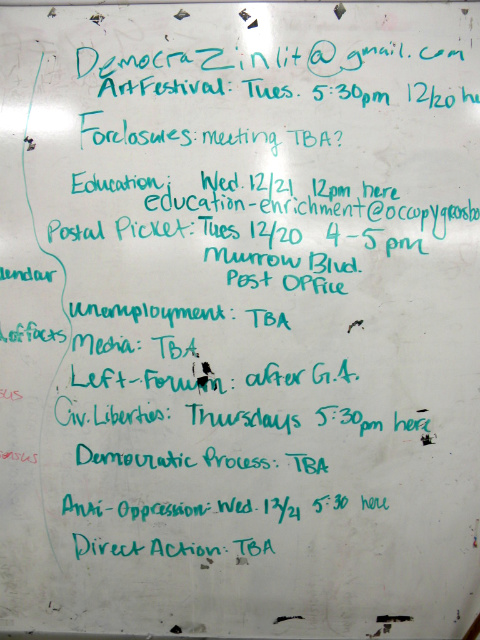 DemocraZinlit@gmail.com
Art Festival: Tues. 5:30pm 12/20 he
Forclosures: meeting TBA?
Education: Wed. 12/21 12pm here
education-enrichment@occupygreensbo
Postal Picket: Tues 12/20 4-5pm
Murrow Blvd.
Post Office
lendar
Unemployment: TBA
effects
Media: TBA
Left-Forum: after G.A.
sus
Civ. Liberties: Thursdays 5:30pm here
Democratic Process: TBA
ensus
Anti-Oppression: Wed. 12/21 5:30 here
Direct Action: TBA